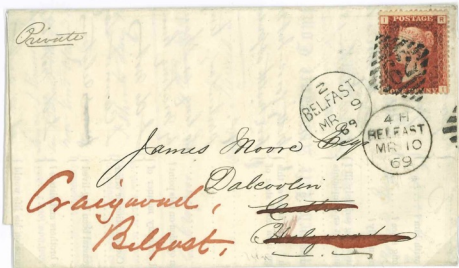 Private
POSTAGE
2
BELFAST
MR 9
69
4 H
BELFAST
MR 10
69
James Moore Esq
Dalcoolin
Craigavad,
Belfast,